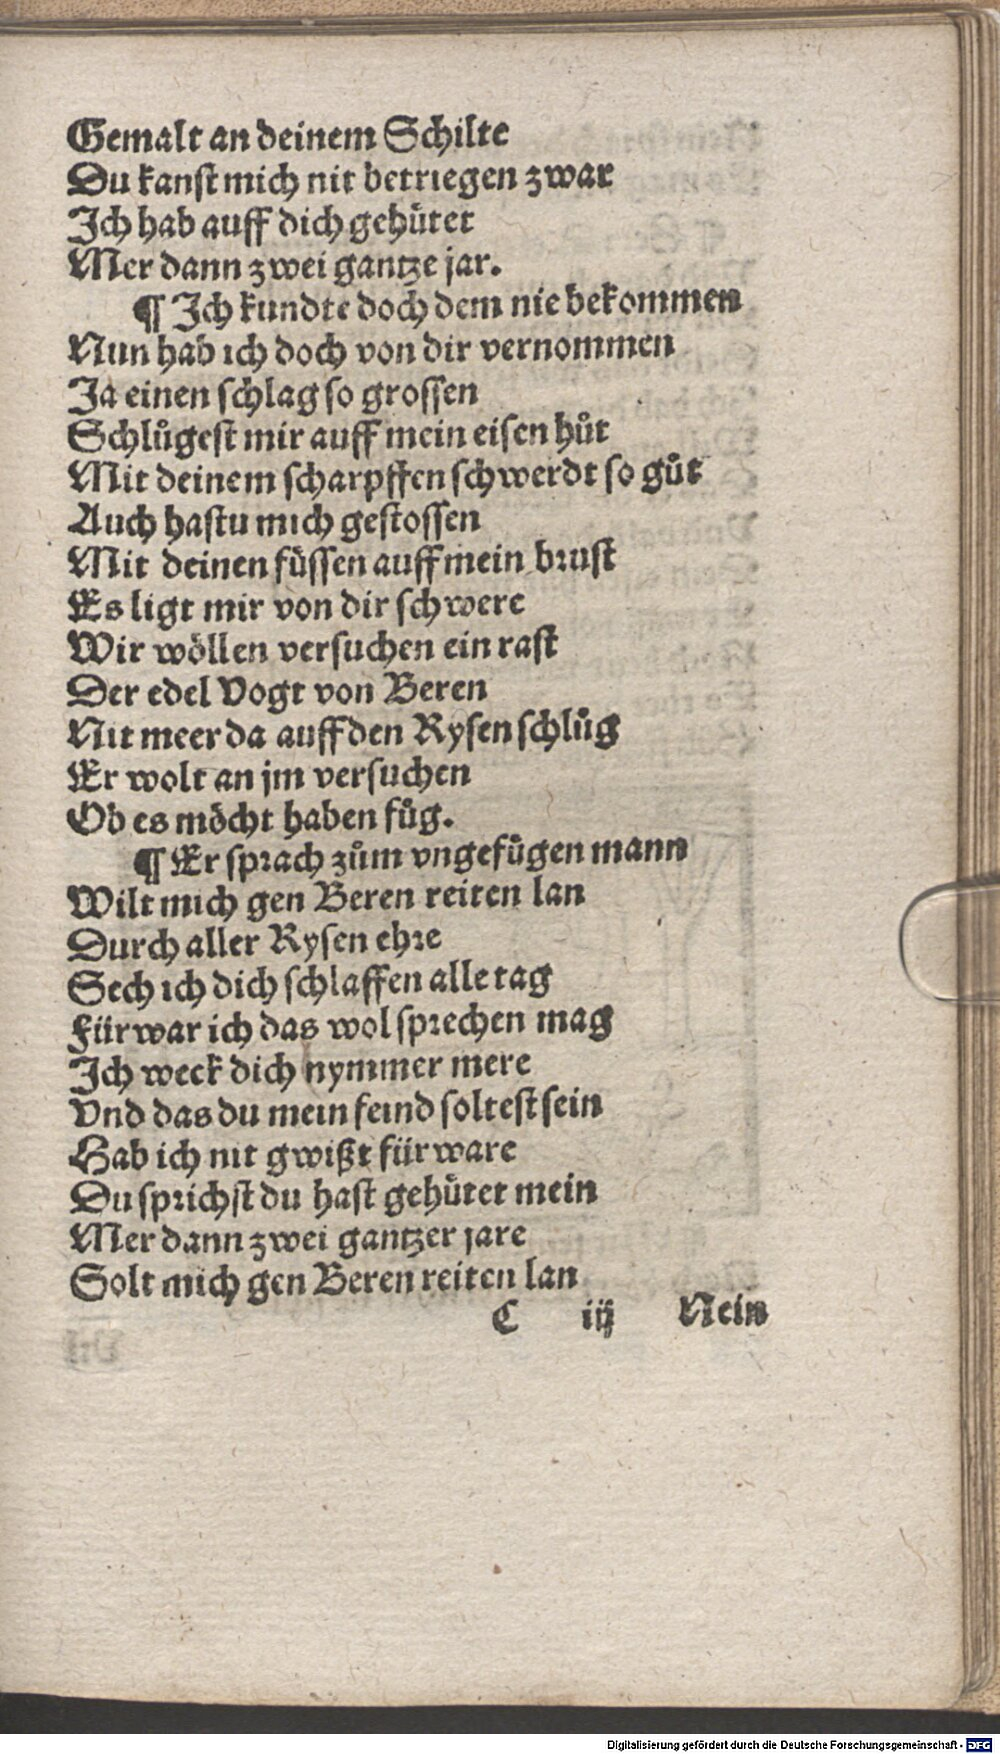 Gemalt an deinem Schilte
Du kanst mich nit betriegen zwar
Ich hab auff dich gehütet
Mer dann zwei gantze jar.
¶ Ich kundte doch dem nie bekommen
Nun hab ich doch von dir vernommen
Ja einen schlag so grossen
Schlůgest mir auff mein eisen hůt
Mit deinem scharpffen schwerdt so gůt
Auch hastu mich gestossen
Mit deinen füssen auff mein brust
Es ligt mir von dir schwere
Wir wöllen versuchen ein rast
Der edel Vogt von Beren
Nit meer da auff den Rysen schlůg
Er wolt an jm versuchen
Ob es möcht haben fůg.
¶ Er sprach zům vngefügen mann
Wilt mich gen Beren reiten lan
Durch aller Rysen ehre
Sech ich dich schlaffen alle tag
Fürwar ich das wol sprechen mag
Ich weck dich nymmer mere
Vnd das du mein feind soltest sein
Hab ich nit gwißt fürware
Du sprichst du hast gehütet mein
Mer dann zwei gantzer jare
Solt mich gen Beren reiten lan
C iij Nein
Digitalisierung gefördert durch die Deutsche Forschungsgemeinschaft - DFG